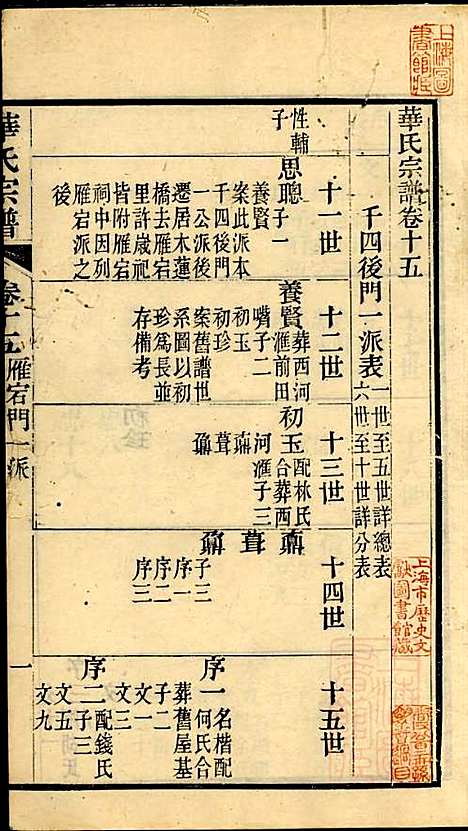 上海圖書館藏
華氏宗譜卷十五
千四後門一派表
一世至五世詳總表
六世至十世詳分表
上海市歷史文獻圖書館藏
十一世
十二世
十三世
十四世
十五世
性輔子
思聰子一
養賢
案此派本
千四後門
一公派後
遷居木蓮
橋去雁宕
里許歲祀
皆附雁宕
祠中因列
雁宕派之
後
養賢葬西河滙前田
嘴子二
初玉
初珍
案舊譜世
系圖以初
珍為長並
存備考
初玉配林氏合葬西
河滙子三
鼐
葺
鼒
鼐
子三
序一
序二
序三
葺
鼒
序一名楷配何氏合
葬舊屋基
子二
文一
文三
序二配錢氏子三
文五
文九
華氏宗譜
卷十五
雁宕門一派
一